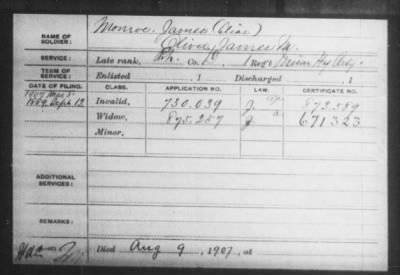 NAME OF SOLDIER: Monroe, James (Alias)
Oliver, James M.
SERVICE: Late rank, Co. D, 1 Reg't Hvy Arty.
TERM OF SERVICE: Enlisted , 1 Discharged , 1
DATE OF FILING. CLASS. APPLICATION NO. LAW. CERTIFICATE NO.
1889 Sept. 12 Invalid, 730.039 J. 873.589
Widow, 875.257 J. 671323
Minor,
ADDITIONAL SERVICES:
REMARKS:
Died Aug 9, 1907, at